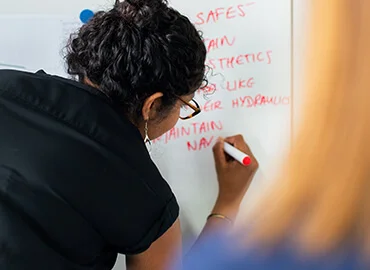 SAFES
AIN
STHETICS
LIKE
EIR HYDRAULICS
NTAIN
NAV